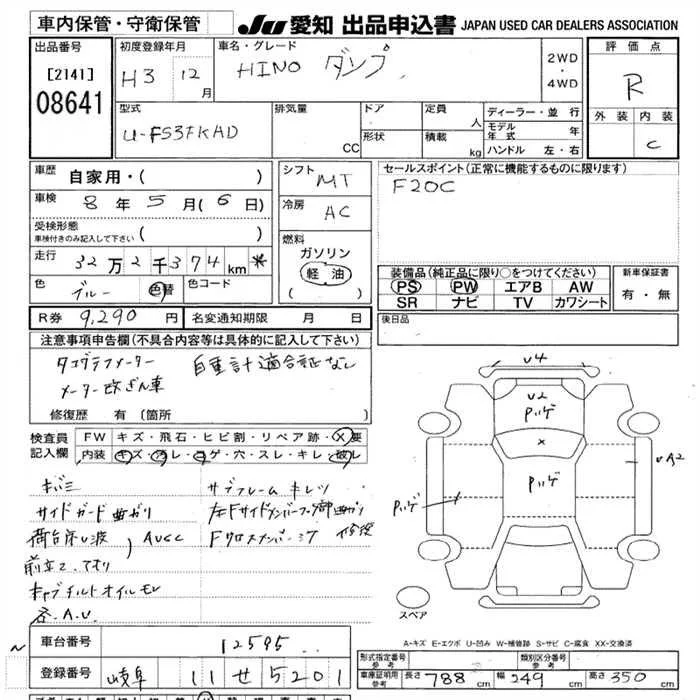 車内保管・守衛保管
JU 愛知 出品申込書 JAPAN USED CAR DEALERS ASSOCIATION
出品番号
[2141]
08641
初度登録年月
H3 12月
車名・グレード
HINO ダンプ
2WD
・
4WD
評価点
R
外装 内装
C
型式
U-FS3FKAD
排気量
CC
ドア
・
形状
定員
人
積載
kg
ディーラー・並行
モデル年式 年
ハンドル 左・右
車歴 自家用・( )
車検 8年5月(6日)
受検形態
車検付きのみ記入して下さい ( )
走行 32万2千374km *
色 ブルー 色替 色コード
シフト MT
冷房 AC
燃料
ガソリン
軽油
( )
セールスポイント(正常に機能するものに限ります)
F20C
装備品(純正品に限り○をつけてください)
PS PW エアB AW
SR ナビ TV カワシート
新車保証書
有・無
R券 9,290円 名変通知期限 月 日
後日品
注意事項申告欄(不具合内容等は具体的に記入して下さい)
タコグラフメーター 自重計適合証なし
メーター改ざん車
修復歴 有 〔箇所 〕
検査員記入欄
FW キズ・飛石・ヒビ割・リペア跡・X要
内装 キズ・汚レ・コゲ・穴・スレ・キレ・破レ
キバミ サブフレームキレツ
サイドガード曲がり
荷台床U波 AUCC
Fクロスメンバーコケ 修復
キャブチルトオイルモレ
各.A.U.
U4
U2
Pいゲ
×
Pいゲ
Pいゲ
UA2
スペア
A-キズ E-エクボ U-凹み W-補修跡 S-サビ C-腐食 XX-交換済
車台番号 12595
登録番号 岐阜 11 せ 5201
形式指定番号 参考
類別区分番号 参考
車庫証明用 参考 長さ 788cm 幅 249cm 高さ 350cm